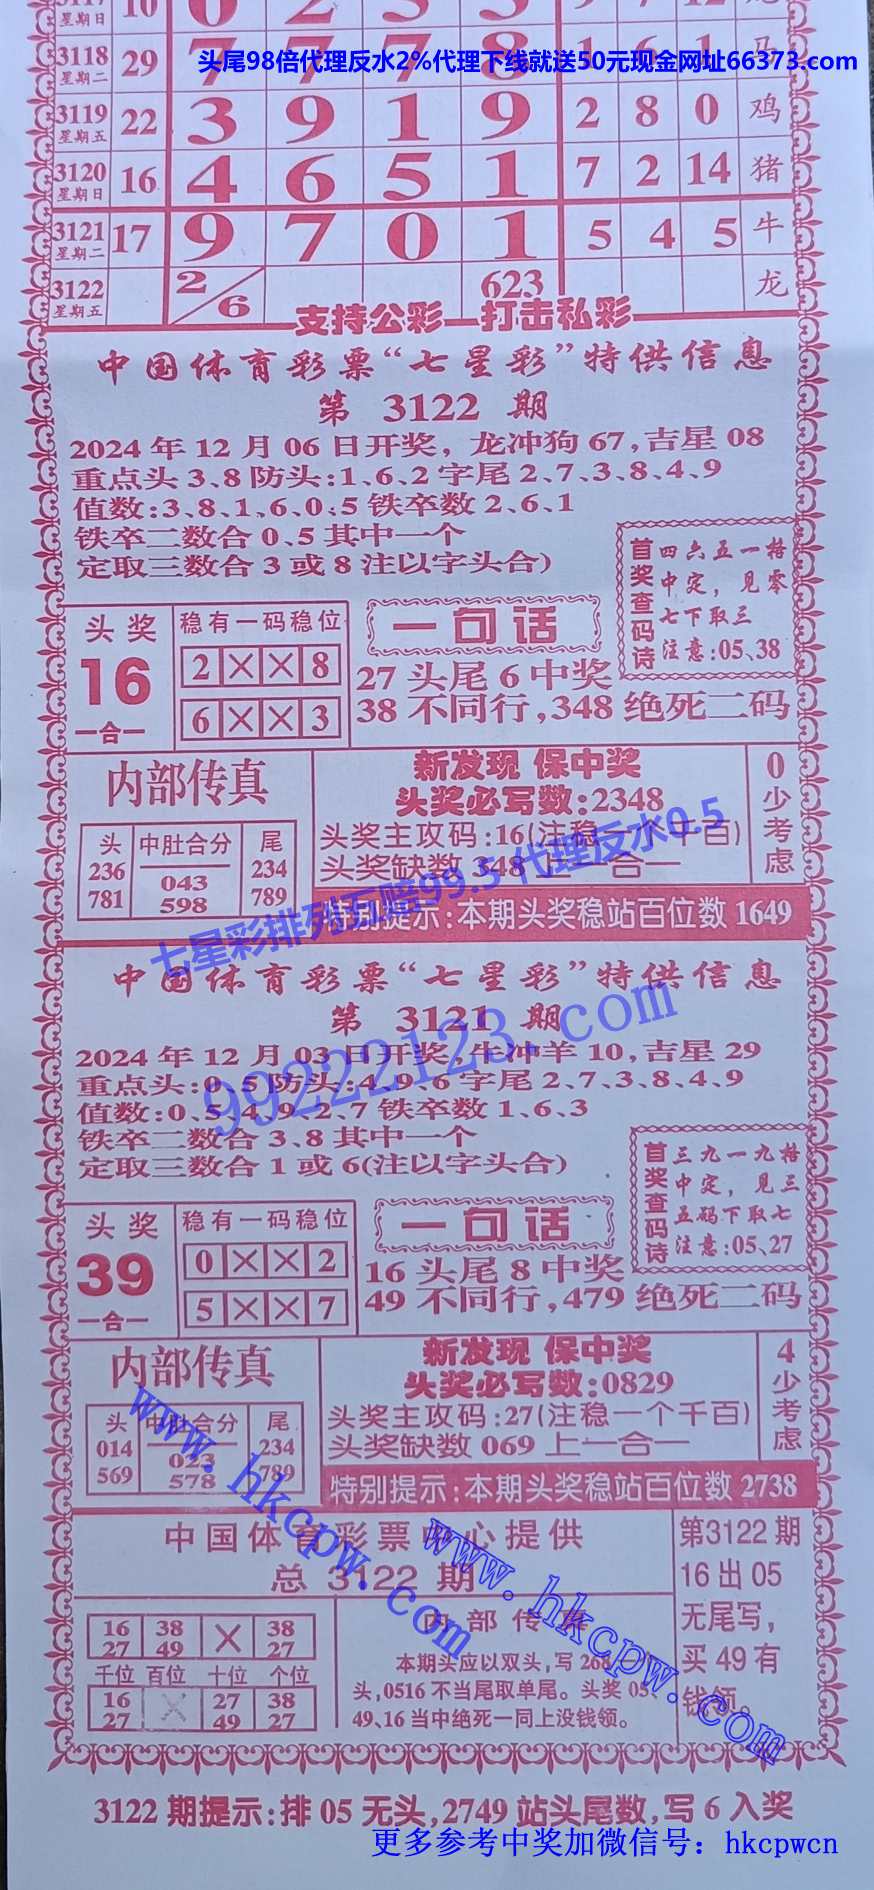 3117 10 0 2 3 3 9 7 12
星期日
3118 29 7 7 7 8 1 6 1 马
星期二
头尾98倍代理反水2%代理下线就送50元现金网址66373.com
3119 22 3 9 1 9 2 8 0 鸡
星期五
3120 16 4 6 5 1 7 2 14 猪
星期日
3121 17 9 7 0 1 5 4 5 牛
星期二
3122 2/6 623 龙
星期五
支持公彩—打击私彩
中国体育彩票“七星彩”特供信息
第 3122 期
2024年12月06日开奖,龙冲狗67,吉星08
重点头3、8防头:1、6、2字尾2、7、3、8、4、9
值数:3、8、1、6、0、5铁卒数2、6、1
铁卒二数合0、5其中一个
定取三数合3或8注以字头合)
首奖查码诗
四六五一格
中定，见零
七下取三
注意:05、38
头奖
16
一合一
稳有一码稳位
2××8
6××3
一句话
27头尾6中奖
38不同行,348绝死二码
内部传真
头 中肚合分 尾
236 043 234
781 598 789
新发现 保中奖
头奖必写数:2348
头奖主攻码:16(注稳一个千百)
头奖缺数348上一合一
0少考虑
特别提示:本期头奖稳站百位数1649
七星彩排列五赔99.5代理反水0.5
中国体育彩票“七星彩”特供信息
第 3121 期
99222123.com
2024年12月03日开奖,牛冲羊10,吉星29
重点头:0、5防头:4、9、6字尾2、7、3、8、4、9
值数:0、5、4、9、2、7铁卒数1、6、3
铁卒二数合3、8其中一个
定取三数合1或6(注以字头合)
首奖查码诗
三九一九格
中定，见三
五码下取七
注意:05、27
头奖
39
一合一
稳有一码稳位
0××2
5××7
一句话
16头尾8中奖
49不同行,479绝死二码
内部传真
头 中肚合分 尾
014 023 234
569 578 789
新发现 保中奖
头奖必写数:0829
头奖主攻码:27(注稳一个千百)
头奖缺数069上一合一
4少考虑
特别提示:本期头奖稳站百位数2738
www.hkcpw.com
www.hkcpw.com
中国体育彩票中心提供
总 3122 期
16 38 × 38
27 49 27
千位 百位 十位 个位
16 × 27 38
27 49 27
内部传真
本期头应以双头,写268
头,0516不当尾取单尾。头奖05、
49、16当中绝死一同上没钱领。
第3122期
16出05
无尾写,
买49有
钱领。
3122期提示:排05无头,2749站头尾数,写6入奖
更多参考中奖加微信号：hkcpwcn